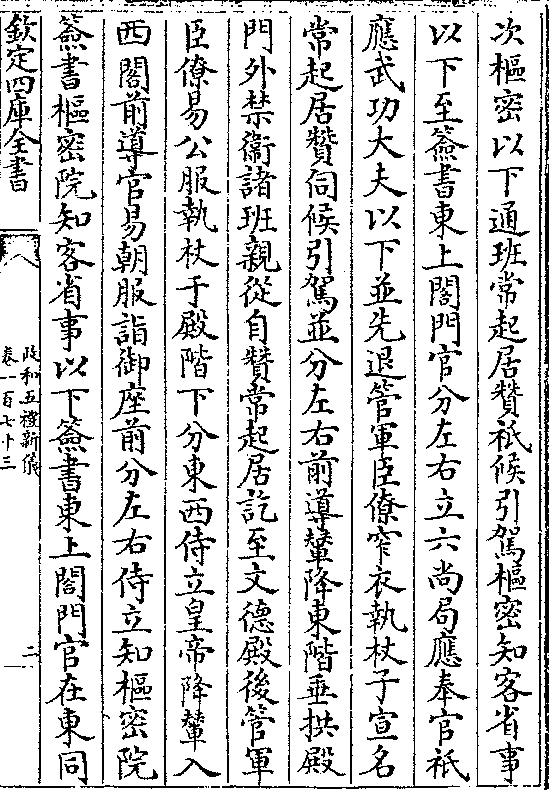 次樞密以下通班常起居贊祇候引駕樞密知客省事
以下至簽書東上閤門官分左右立六尚局應奉官祇
應武功大夫以下並先退管軍臣僚窄衣執杖子宣名
常起居贊伺候引駕並分左右前導輦降東階垂拱殿
門外禁衞諸班親從自贊常起居訖至文德殿後管軍
臣僚易公服執杖于殿階下分東西侍立皇帝降輦入
西閤前導官易朝服詣御座前分左右侍立知樞密院
簽書樞密院知客省事以下簽書東上閤門官在東同
欽定四庫全書
政和五禮新儀
卷一百七十三
二